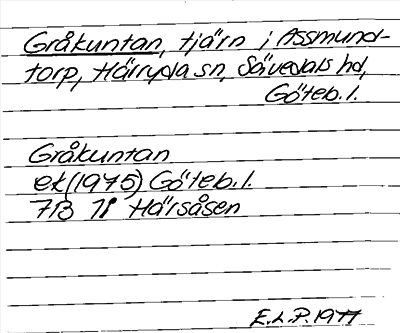 Gråkuntan, tjärn i Assmund-
torp, Härryda sn, Sävedals hd,
Göteb. l.
Gråkuntan
ek (1975) Göteb. l.
7B Härsåsen
E.L.P. 1977